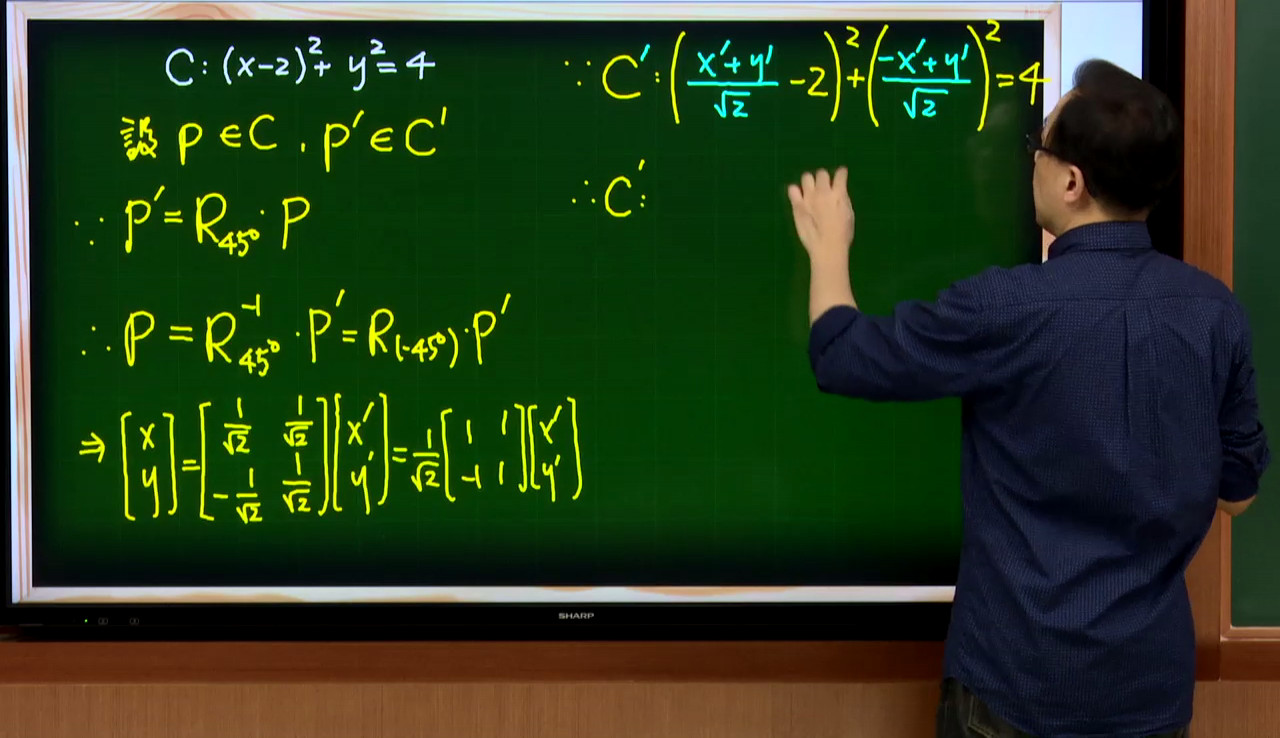 C: (x-2)² + y² = 4
設 P ∈ C , P′ ∈ C′
∵ P′ = R₄₅° · P
∴ P = R₄₅°⁻¹ · P′ = R₍₋₄₅°₎ · P′
⇒ [x; y] = [1/√2 1/√2; -1/√2 1/√2][x′; y′] = 1/√2 [1 1; -1 1][x′; y′]
∵ C′: ((x′+y′)/√2 - 2)² + ((-x′+y′)/√2)² = 4
∴ C′:
SHARP